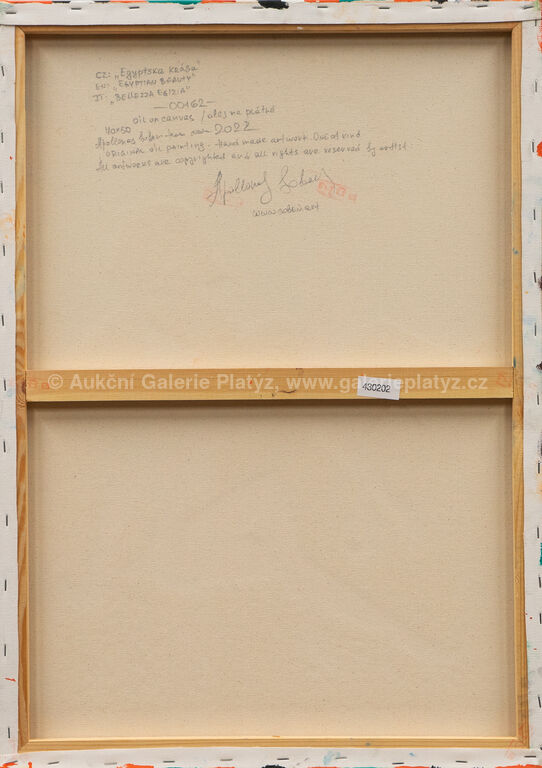 CZ: „Egyptská krása"
EN: „EGYPTIAN BEAUTY"
IT: „BELLEZZA EGIZIA"
—00162—
oil on canvas / olej na plátně
2022
ORIGINAL oil painting. Hand made artwork. One of kind
All artworks are copyrighted and all rights are reserved by artist.
www.sobein.art
© Aukční Galerie Platýz, www.galerieplatyz.cz
430202